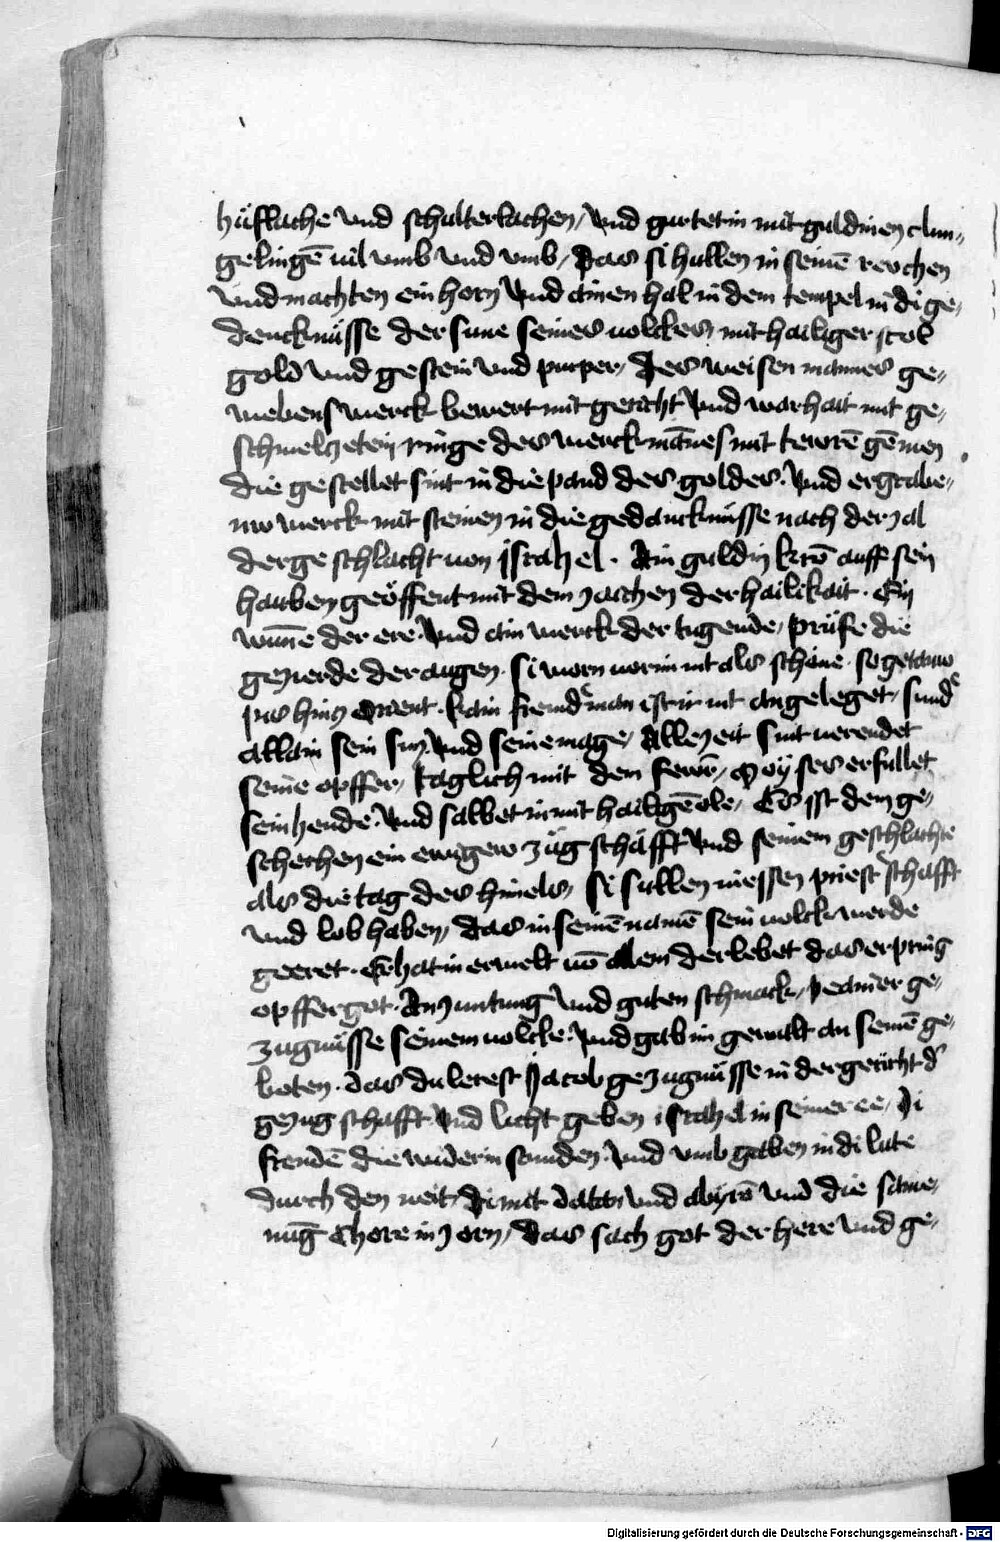 hüflache vnd schulterlachen / Vnd gurtet in mit guldinen clun⸗
gelingē uil vmb vnd vmb / Das si hullen in seinē
vnd machten ein horn Vnd ainen hal in dem tempel in di ge⸗
dencknüsse der sune seines uolckes / mit hailiger stol
gold vnd gestein vnd purper / Des weisen mannes ge⸗
webens werck bewert mit gericht Vnd warhait mit ge⸗
schmelczeten ringe des werckmānes mit tewrē gēmen
die gestellet sint in die pand des goldes · Vnd ergrabe⸗
nes werck mit steinen in die gedancknüsse nach der zal
der geschlacht von jsrahel · Ain guldin krō auff sein
hauben geöffent mit dem zaichen der hailikait · Ein
wūne der ere · Vnd ain werck der tugende / Prüfe die
gezierde der augen · si worn uor im nit als schöne · so getanew
pis hincz Orient · kain fremdˢ man ist ir nit an geleget / sundˢ
allain sein sun Vnd seine mage / Alle zeit sint uerendet
seine opffer / taglich mit dem fewr / Moÿses erfullet
sein hende · Vnd salbet in mit hailigē ole / Es ist dem ge⸗
schechen ein ewigew züg schäfft Vnd seinem geschlächte
als die tag des himels / Si sullen niessen priestˢschafft
und lob haben / Das in seinē namē sein uolck werde
geeret · Er hat in erwelt uō allem der lebet das er pring
opffer got · Anzuntung Vnd guten schmack /
zugnüsse seinem uolcke · Vnd gab im gewalt an seinē ge⸗
boten · Das du lerest Jacob gezugnüsse in der gericht dˢ
gezug schafft Vnd licht geben israhel in seiner ee / Di
fremdē die widerin stunden · Vnd vmb gaben in di lute
durch den neit / Di mit datan vnd abyrō vnd die same⸗
nūg Chore in zorn / Das sach got der here vnd ge⸗
Digitalisierung gefördert durch die Deutsche Forschungsgemeinschaft - DFG